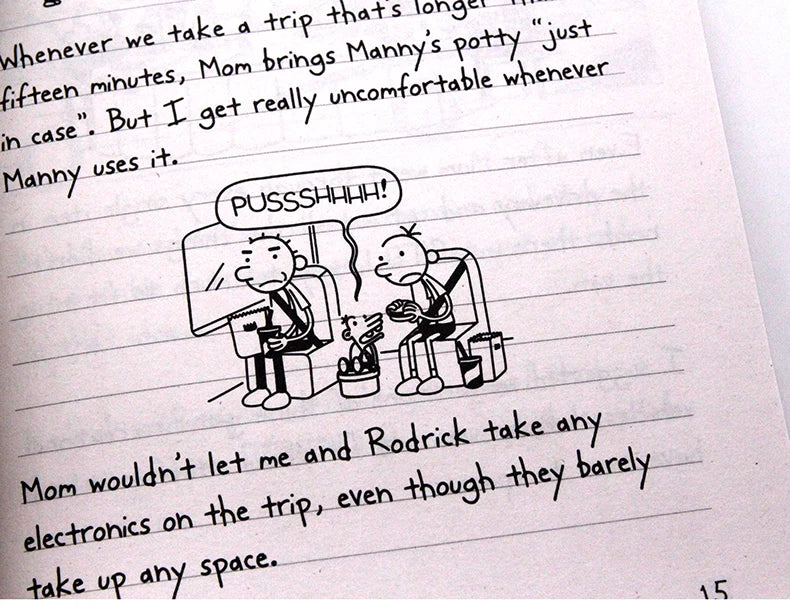 Whenever we take a trip that's longer
fifteen minutes, Mom brings Manny's potty "just
in case". But I get really uncomfortable whenever
Manny uses it.
PUSSSHHHH!
Mom wouldn't let me and Rodrick take any
electronics on the trip, even though they barely
take up any space.
15